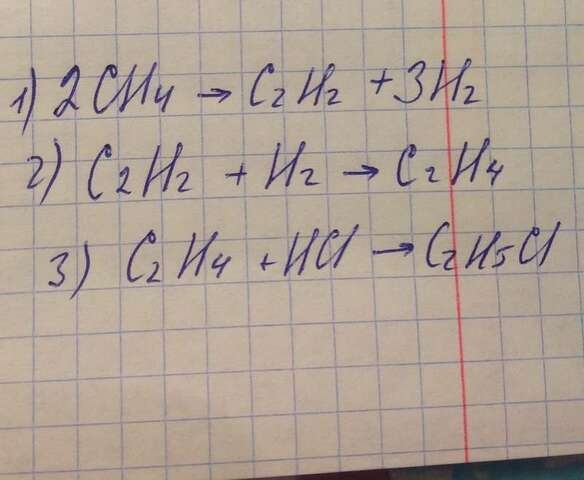 1) 2CH4 → C2H2 + 3H2
2) C2H2 + H2 → C2H4
3) C2H4 + HCl → C2H5Cl